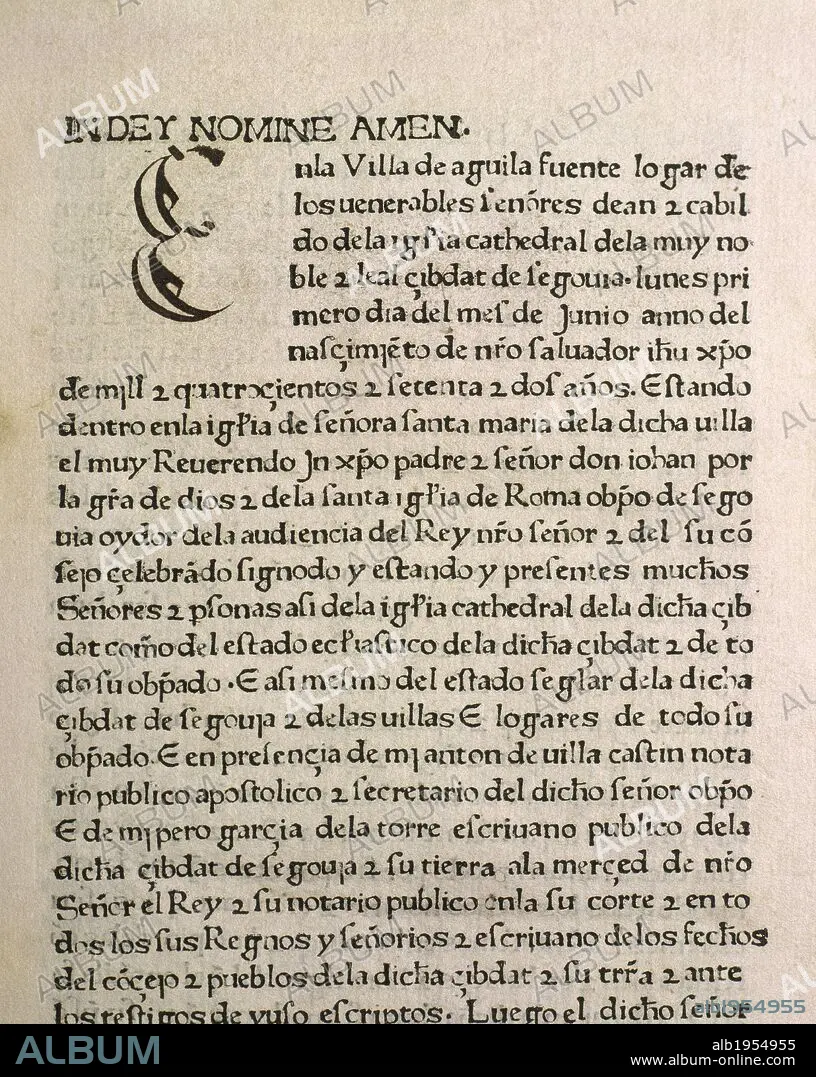 IN DEY NOMINE AMEN.
Enla Villa de aguila fuente logar de
los uenerables ſenõres dean ⁊ cabil
do dela igłia cathedral dela muy no
ble ⁊ leal çibdat de ſegouia. lunes pri
mero dia del meſ de Junio anno del
naſçimjẽto de nr̃o ſaluador ihu xp̃o
de mjll ⁊ quatroçientos ⁊ ſetenta ⁊ doſ años. Eſtando
dentro enla igłia de ſeñora ſanta maria dela dicha uilla
el muy Reuerendo Jn xp̃o padre ⁊ ſeñor don iohan por
la gr̃a de dios ⁊ dela ſanta igłia de Roma obp̃o de ſego
uia oydor dela audiencia del Rey nr̃o ſeñor ⁊ del ſu cõ
ſejo çelebrãdo ſignodo y eſtando y preſentes muchos
Señores ⁊ pſonas aſi dela igłia cathedral dela dicha çib
dat com̃o del eſtado ecłiaſtico dela dicha çibdat ⁊ de to
do ſu obp̃ado. E aſi meſmo del eſtado ſeglar dela dicha
çibdat de ſegouja ⁊ delas uillas E logares de todo ſu
obp̃ado. E en preſençia de mj anton de uilla caſtin nota
rio publico apoſtolico ⁊ ſecretario del dicho ſeñor obp̃o
E de mj pero garçia dela torre eſcriuano publico dela
dicha çibdat de ſegouja ⁊ ſu tierra ala merçed de nr̃o
Señor el Rey ⁊ ſu notario publico enla ſu corte ⁊ en to
dos los ſus Regnos y ſeñorios ⁊ eſcrjuano delos fechos
del cõçejo ⁊ pueblos dela dicha çibdat ⁊ ſu trr̃a ⁊ ante
los teſtigos de yuſo eſcriptos. Luego el dicho ſeñor
ALBUM
alb1954955
alb1954955
www.album-online.com